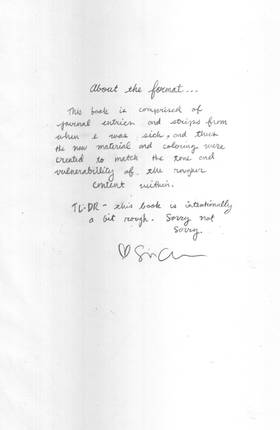 About the format...
This book is comprised of
journal entries and strips from
when I was sick, and then
the new material and coloring were
created to match the tone and
vulnerability of the rougher
content within.
TL;DR - this book is intentionally
a bit rough. Sorry not
sorry.